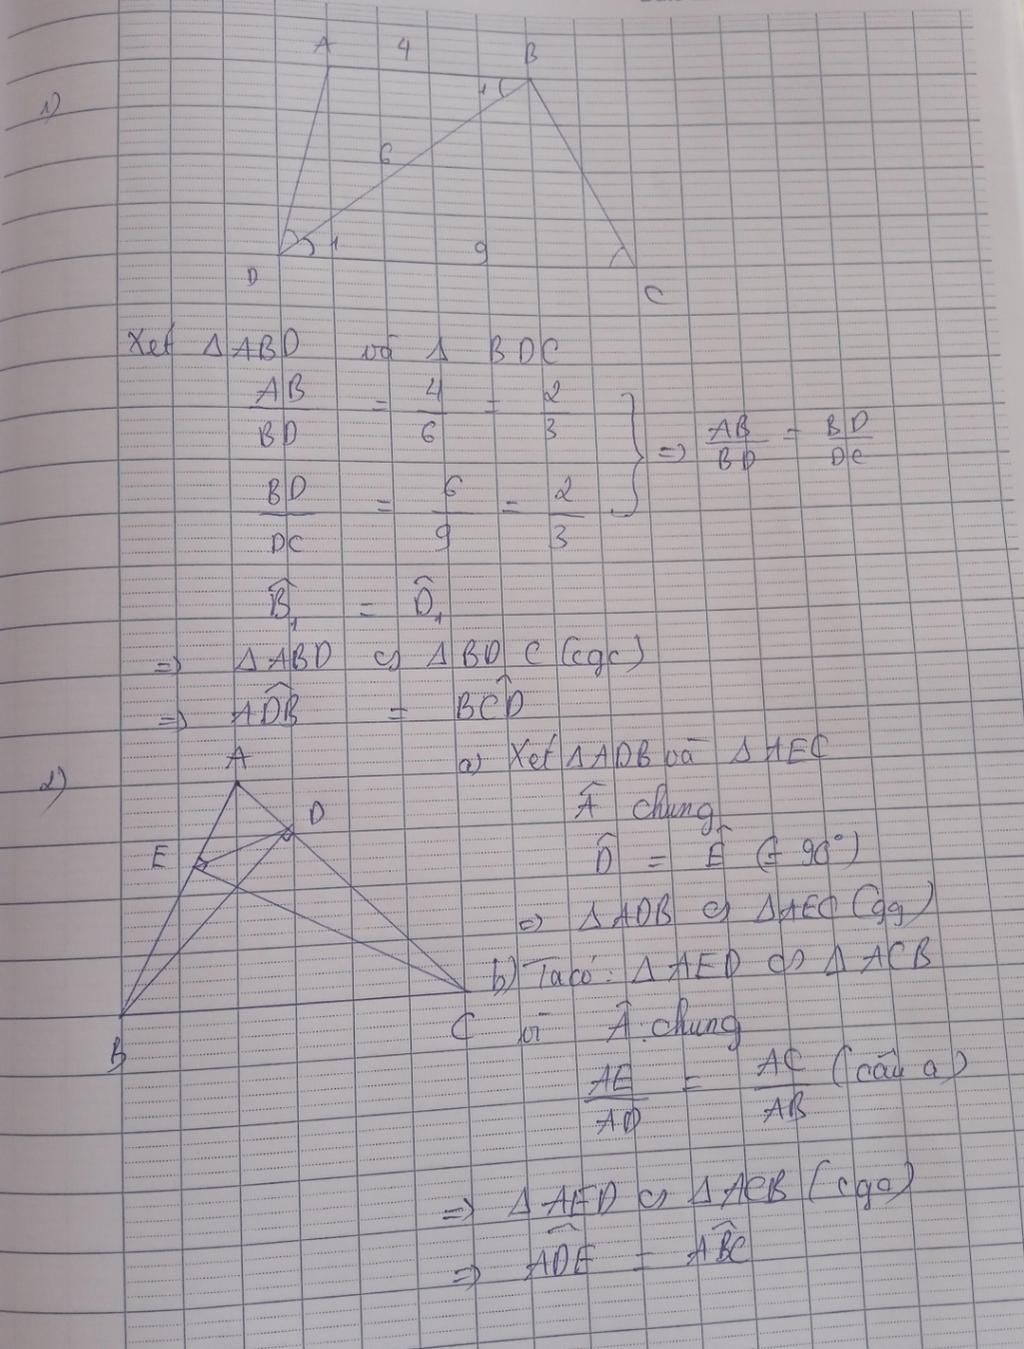 1)
A 4 B
1
6
1 9
D C
Xét Δ ABD và Δ BDC
AB/BD = 4/6 = 2/3
BD/DC = 6/9 = 2/3
} => AB/BD = BD/DC
B̂₁ = D̂₁
=> Δ ABD ∽ Δ BDC (cgc)
=> AD̂B = BĈD
2)
A
D
E
B
C
a) Xét Δ ADB và Δ AEC
Â chung
D̂ = Ê (= 90°)
=> Δ ADB ∽ Δ AEC (gg)
b) Ta có: Δ AED ∽ Δ ACB
vì Â chung
AE/AD = AC/AB (câu a)
=> Δ AED ∽ Δ ACB (cgc)
=> AD̂E = AB̂C